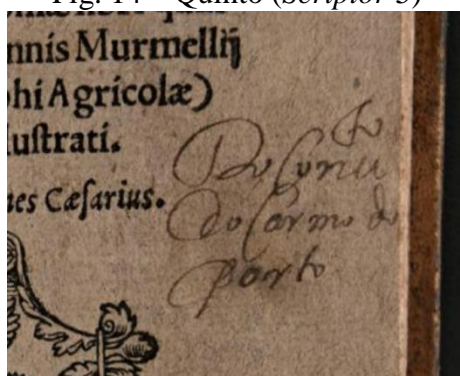 Fig. 14 – Quinto (Scriptor 5)
nnis Murmellij
hi Agricolæ)
luſtrati.
nes Cæſarius.
to
Do Conu
do Carmo do
porto